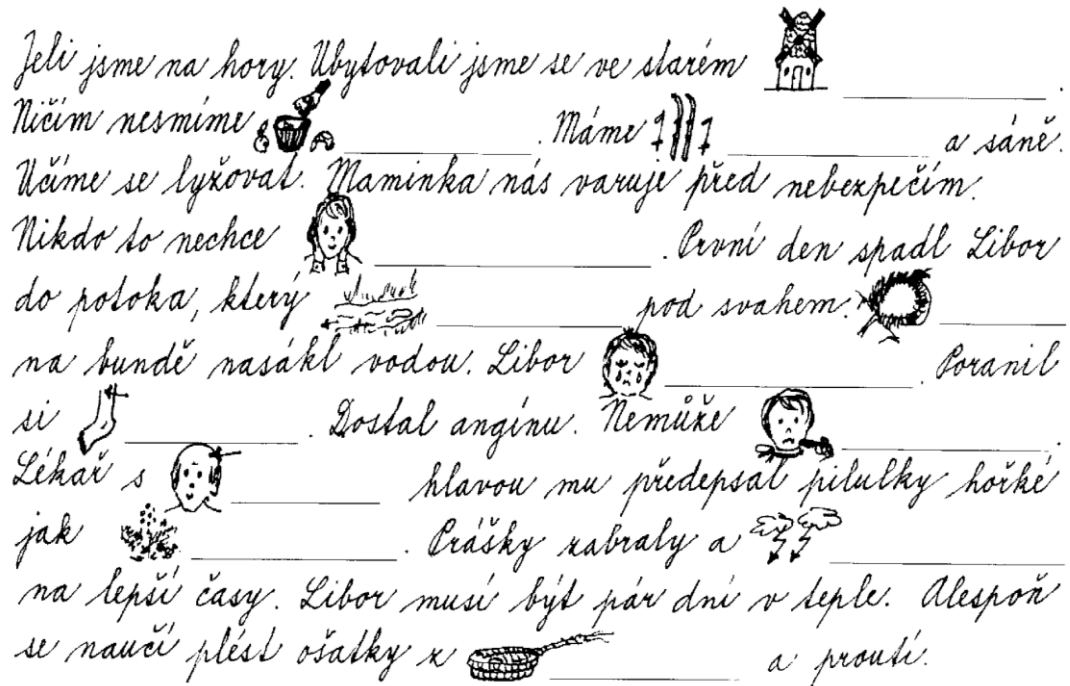 Jeli jsme na hory. Ubytovali jsme se ve starém __________.
Ničím nesmíme __________. Máme __________ a sáně.
Učíme se lyžovat. Maminka nás varuje před nebezpečím.
Nikdo to nechce __________. První den spadl Libor
do potoka, který __________ pod svahem. __________
na bundě nasákl vodou. Libor __________. Poranil
si __________. Dostal angínu. Nemůže __________.
Lékař s __________ hlavou mu předepsal pilulky hořké
jak __________. Prášky zabraly a __________
na lepší časy. Libor musí být pár dní v teple. Alespoň
se naučí plést ošatky z __________ a proutí.